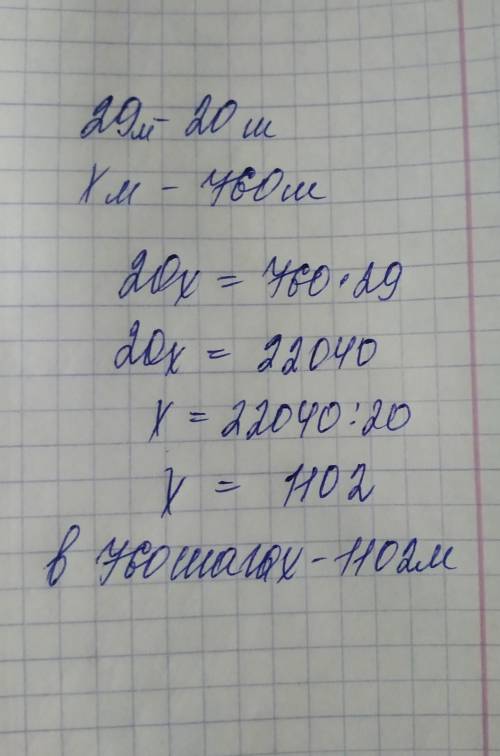 29м - 20 ш
X м - 760 ш
20x = 760 · 29
20x = 22040
x = 22040:20
x = 1102
в 760 шагах - 1102 м